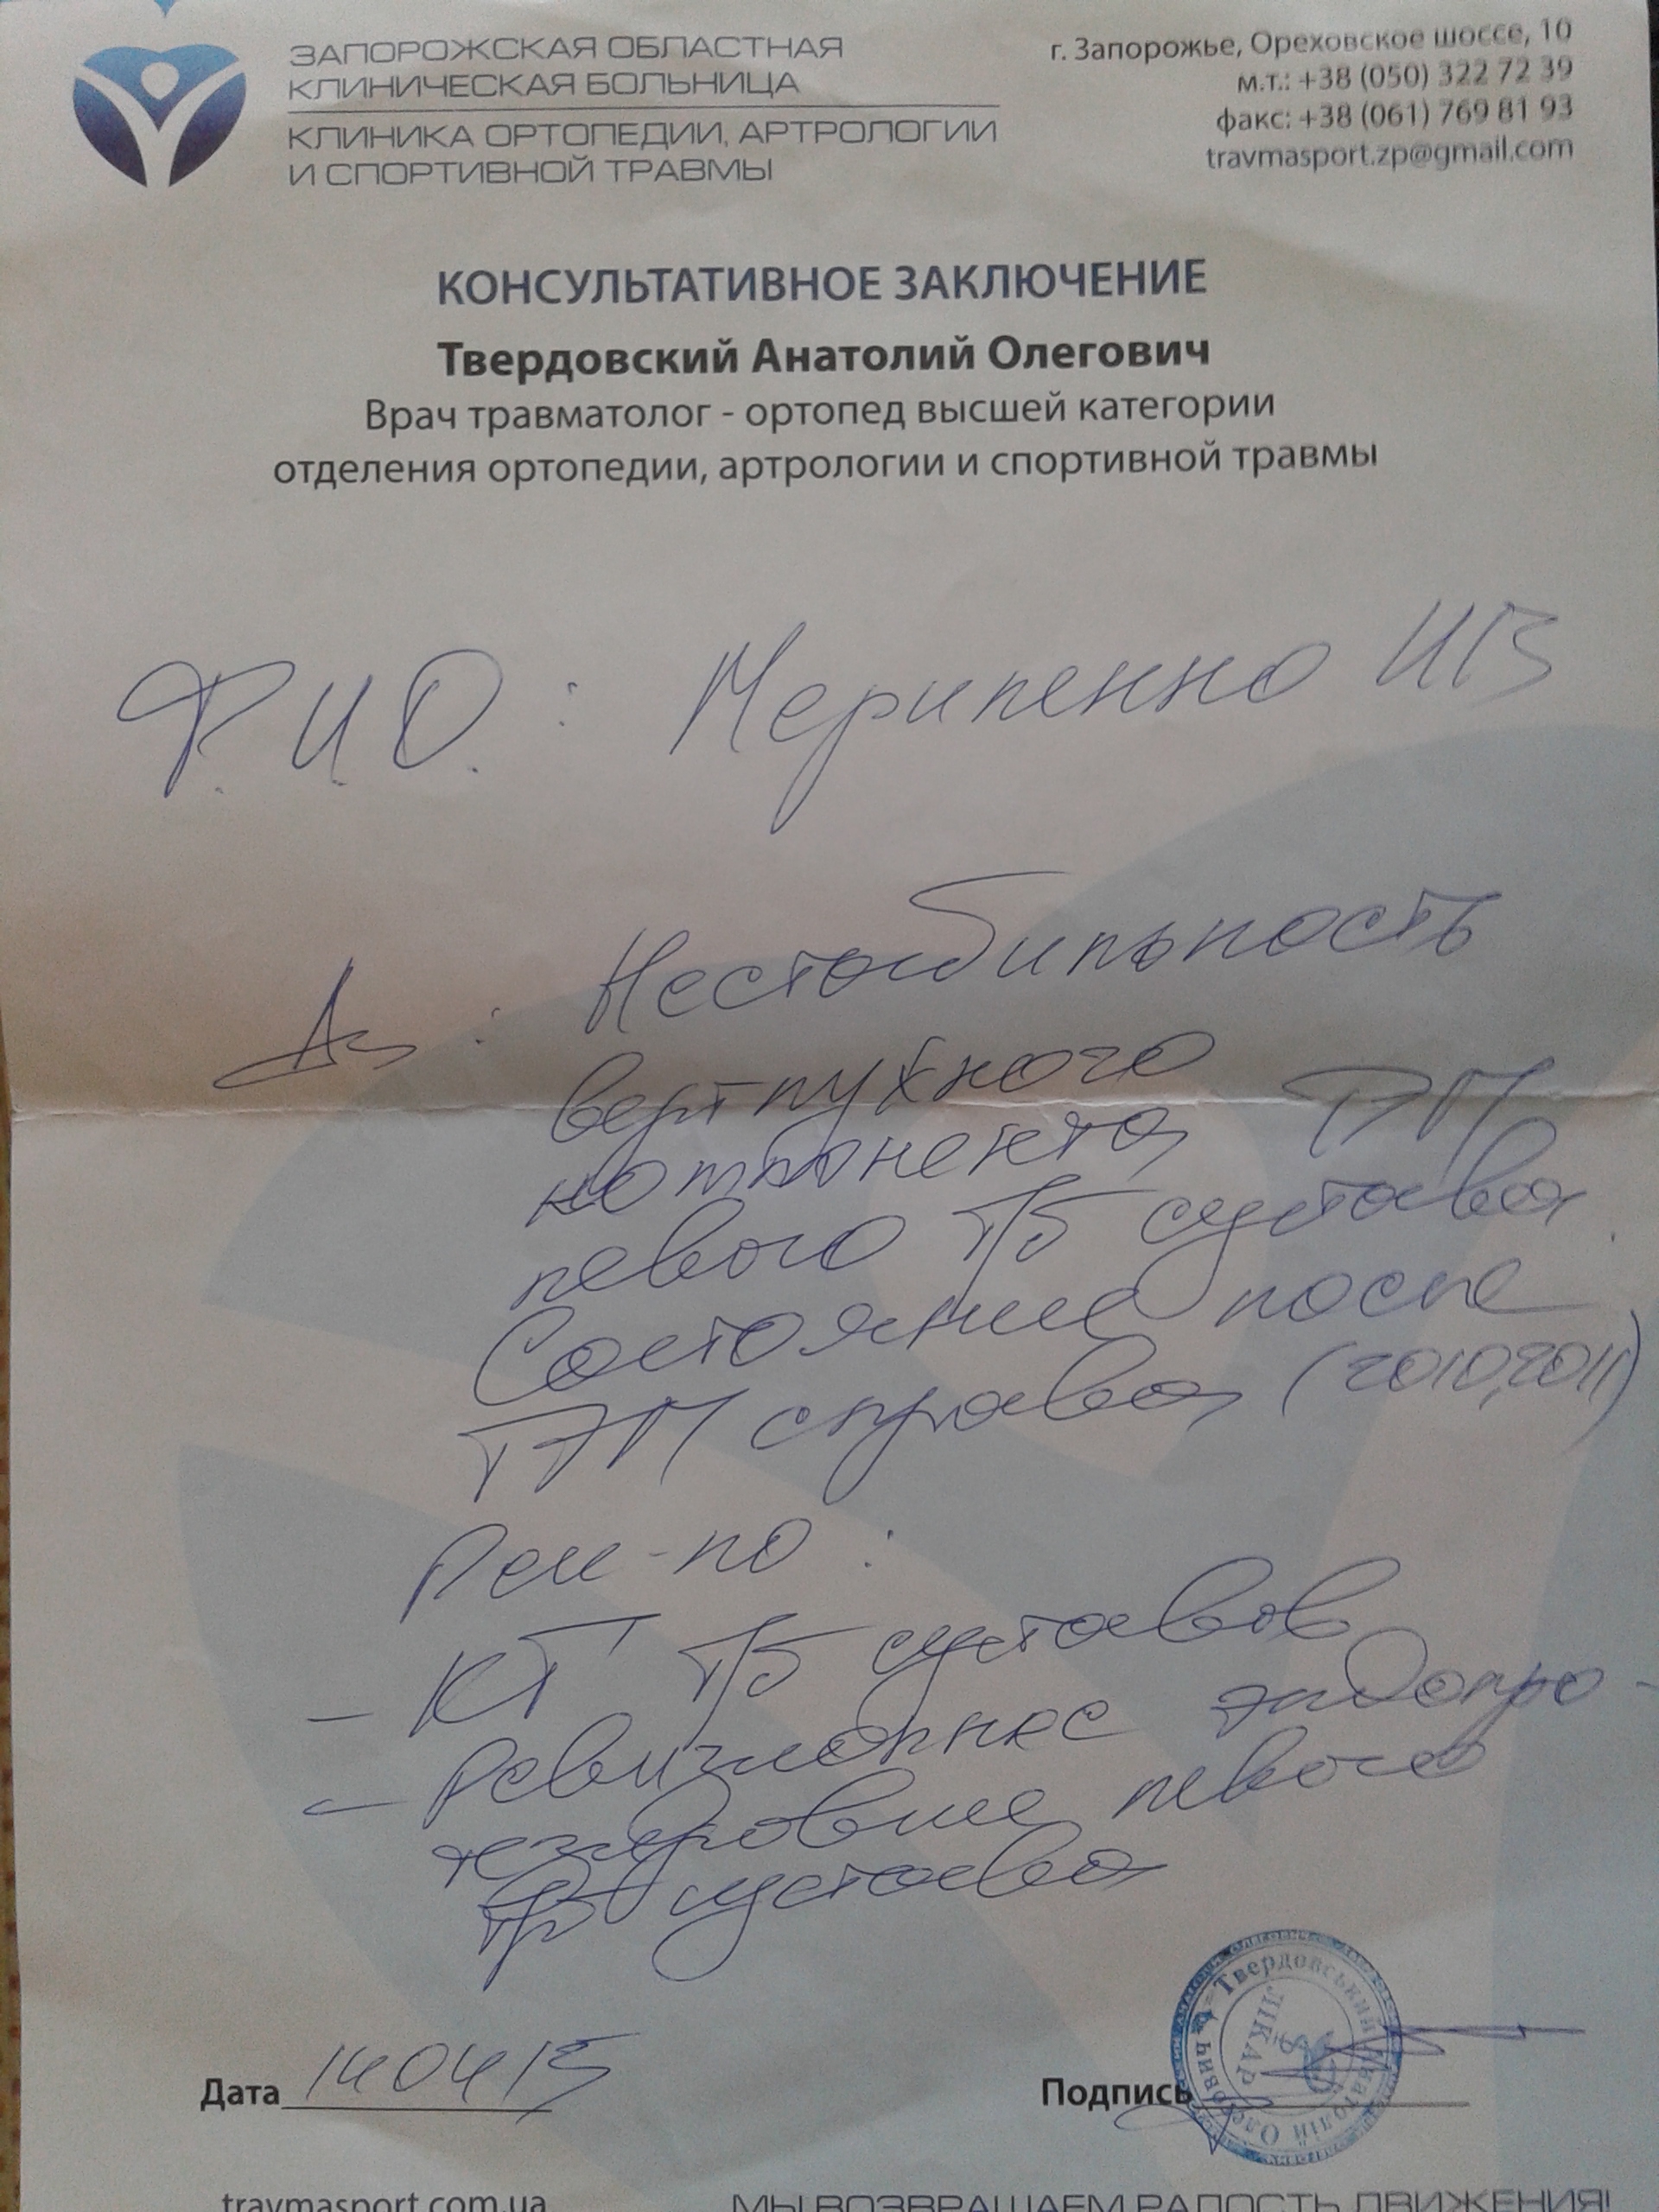 ЗАПОРОЖСКАЯ ОБЛАСТНАЯ
КЛИНИЧЕСКАЯ БОЛЬНИЦА
КЛИНИКА ОРТОПЕДИИ, АРТРОЛОГИИ
И СПОРТИВНОЙ ТРАВМЫ
г. Запорожье, Ореховское шоссе, 10
м.т.: +38 (050) 322 72 39
факс: +38 (061) 769 81 93
travmasport.zp@gmail.com
КОНСУЛЬТАТИВНОЕ ЗАКЛЮЧЕНИЕ
Твердовский Анатолий Олегович
Врач травматолог - ортопед высшей категории
отделения ортопедии, артрологии и спортивной травмы
Ф.И.О. : ИВ
Дз : Нестабильность
вертлужного
компонента
левого ТБ сустава
Состояние после
ТЭП справа (2010, 2011)
Рек-но :
– КТ ТБ суставов
– Ревизионное эндопро-
тезирование левого
ТБ сустава
Дата 14 04 15
Подпись
Твердовський Анатолій Олегович
ЛІКАР
travmasport.com.ua
МЫ ВОЗВРАЩАЕМ РАДОСТЬ ДВИЖЕНИЯ!